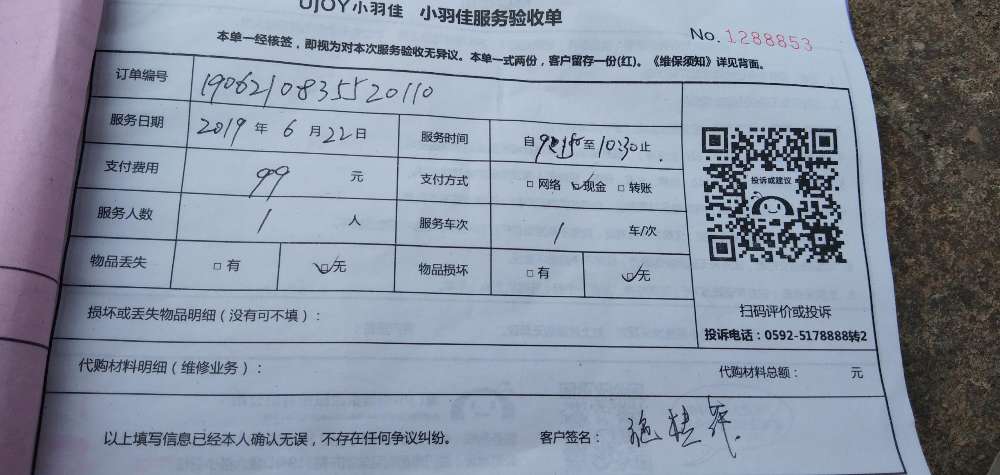 UJOY小羽佳 小羽佳服务验收单
No. 1288853
本单一经核签，即视为对本次服务验收无异议。本单一式两份，客户留存一份(红)。《维保须知》详见背面。
订单编号 1906210835520110
服务日期 2019 年 6 月 22 日 服务时间 自 至 10:30 止
支付费用 99 元 支付方式 □ 网络 □ 现金 □ 转账
服务人数 1 人 服务车次 1 车/次
物品丢失 □ 有 □ 无 物品损坏 □ 有 □ 无
投诉或建议
扫码评价或投诉
投诉电话：0592-5178888转2
损坏或丢失物品明细（没有可不填）：
代购材料明细（维修业务）： 代购材料总额： 元
以上填写信息已经本人确认无误，不存在任何争议纠纷。 客户签名： 施桂萍